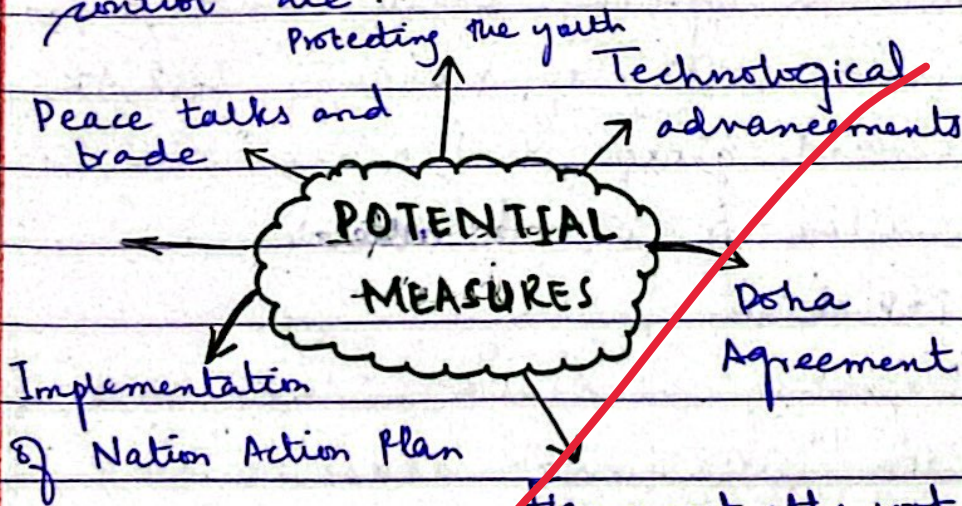 control
Protecting the youth
Technological
advancements
Peace talks and
trade
POTENTIAL
MEASURES
Doha
Agreement
Implementation
of Nation Action Plan